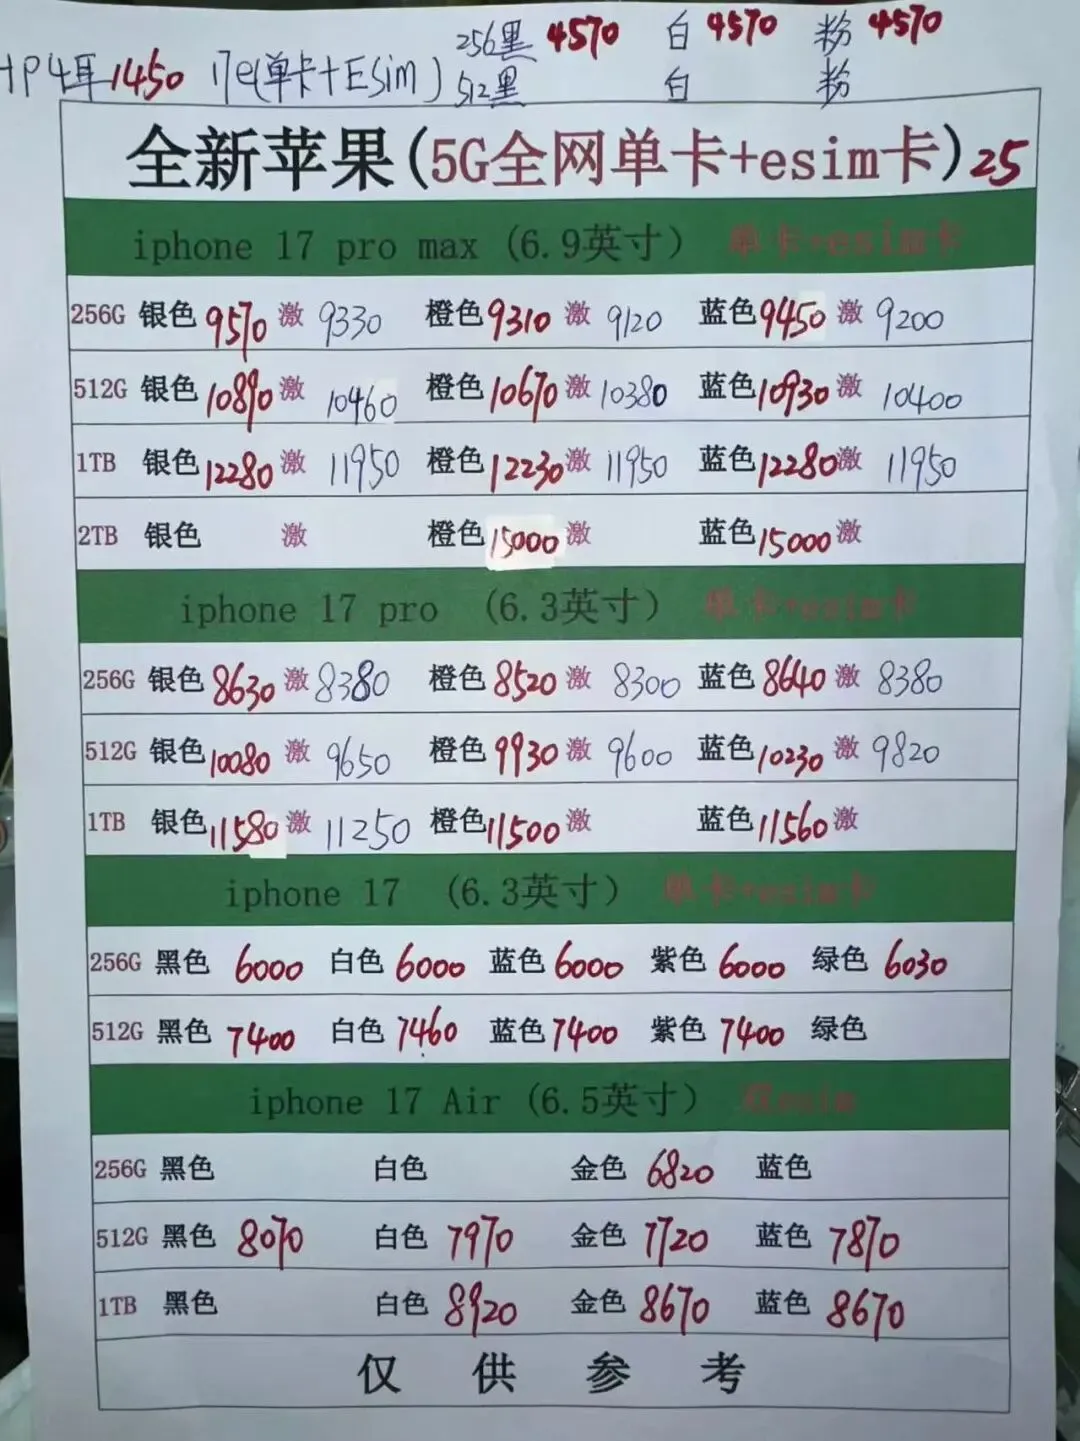 256黑 4570 白 4570 粉 4570
HP4耳 1450 17e(单卡+Esim) 512黑 白 粉
全新苹果(5G全网单卡+esim卡) 25
iphone 17 pro max (6.9英寸) 单卡+esim卡
256G 银色 9570 激 9330 橙色 9310 激 9120 蓝色 9450 激 9200
512G 银色 10890 激 10460 橙色 10670 激 10380 蓝色 10930 激 10400
1TB 银色 12280 激 11950 橙色 12230 激 11950 蓝色 12280 激 11950
2TB 银色 激 橙色 15000 激 蓝色 15000 激
iphone 17 pro (6.3英寸) 单卡+esim卡
256G 银色 8630 激 8380 橙色 8520 激 8300 蓝色 8640 激 8380
512G 银色 10080 激 9650 橙色 9930 激 9600 蓝色 10230 激 9820
1TB 银色 11580 激 11250 橙色 11500 激 蓝色 11560 激
iphone 17 (6.3英寸) 单卡+esim卡
256G 黑色 6000 白色 6000 蓝色 6000 紫色 6000 绿色 6030
512G 黑色 7400 白色 7460 蓝色 7400 紫色 7400 绿色
iphone 17 Air (6.5英寸) 双esim
256G 黑色 白色 金色 6820 蓝色
512G 黑色 8070 白色 7970 金色 7720 蓝色 7870
1TB 黑色 白色 8920 金色 8670 蓝色 8670
仅供参考